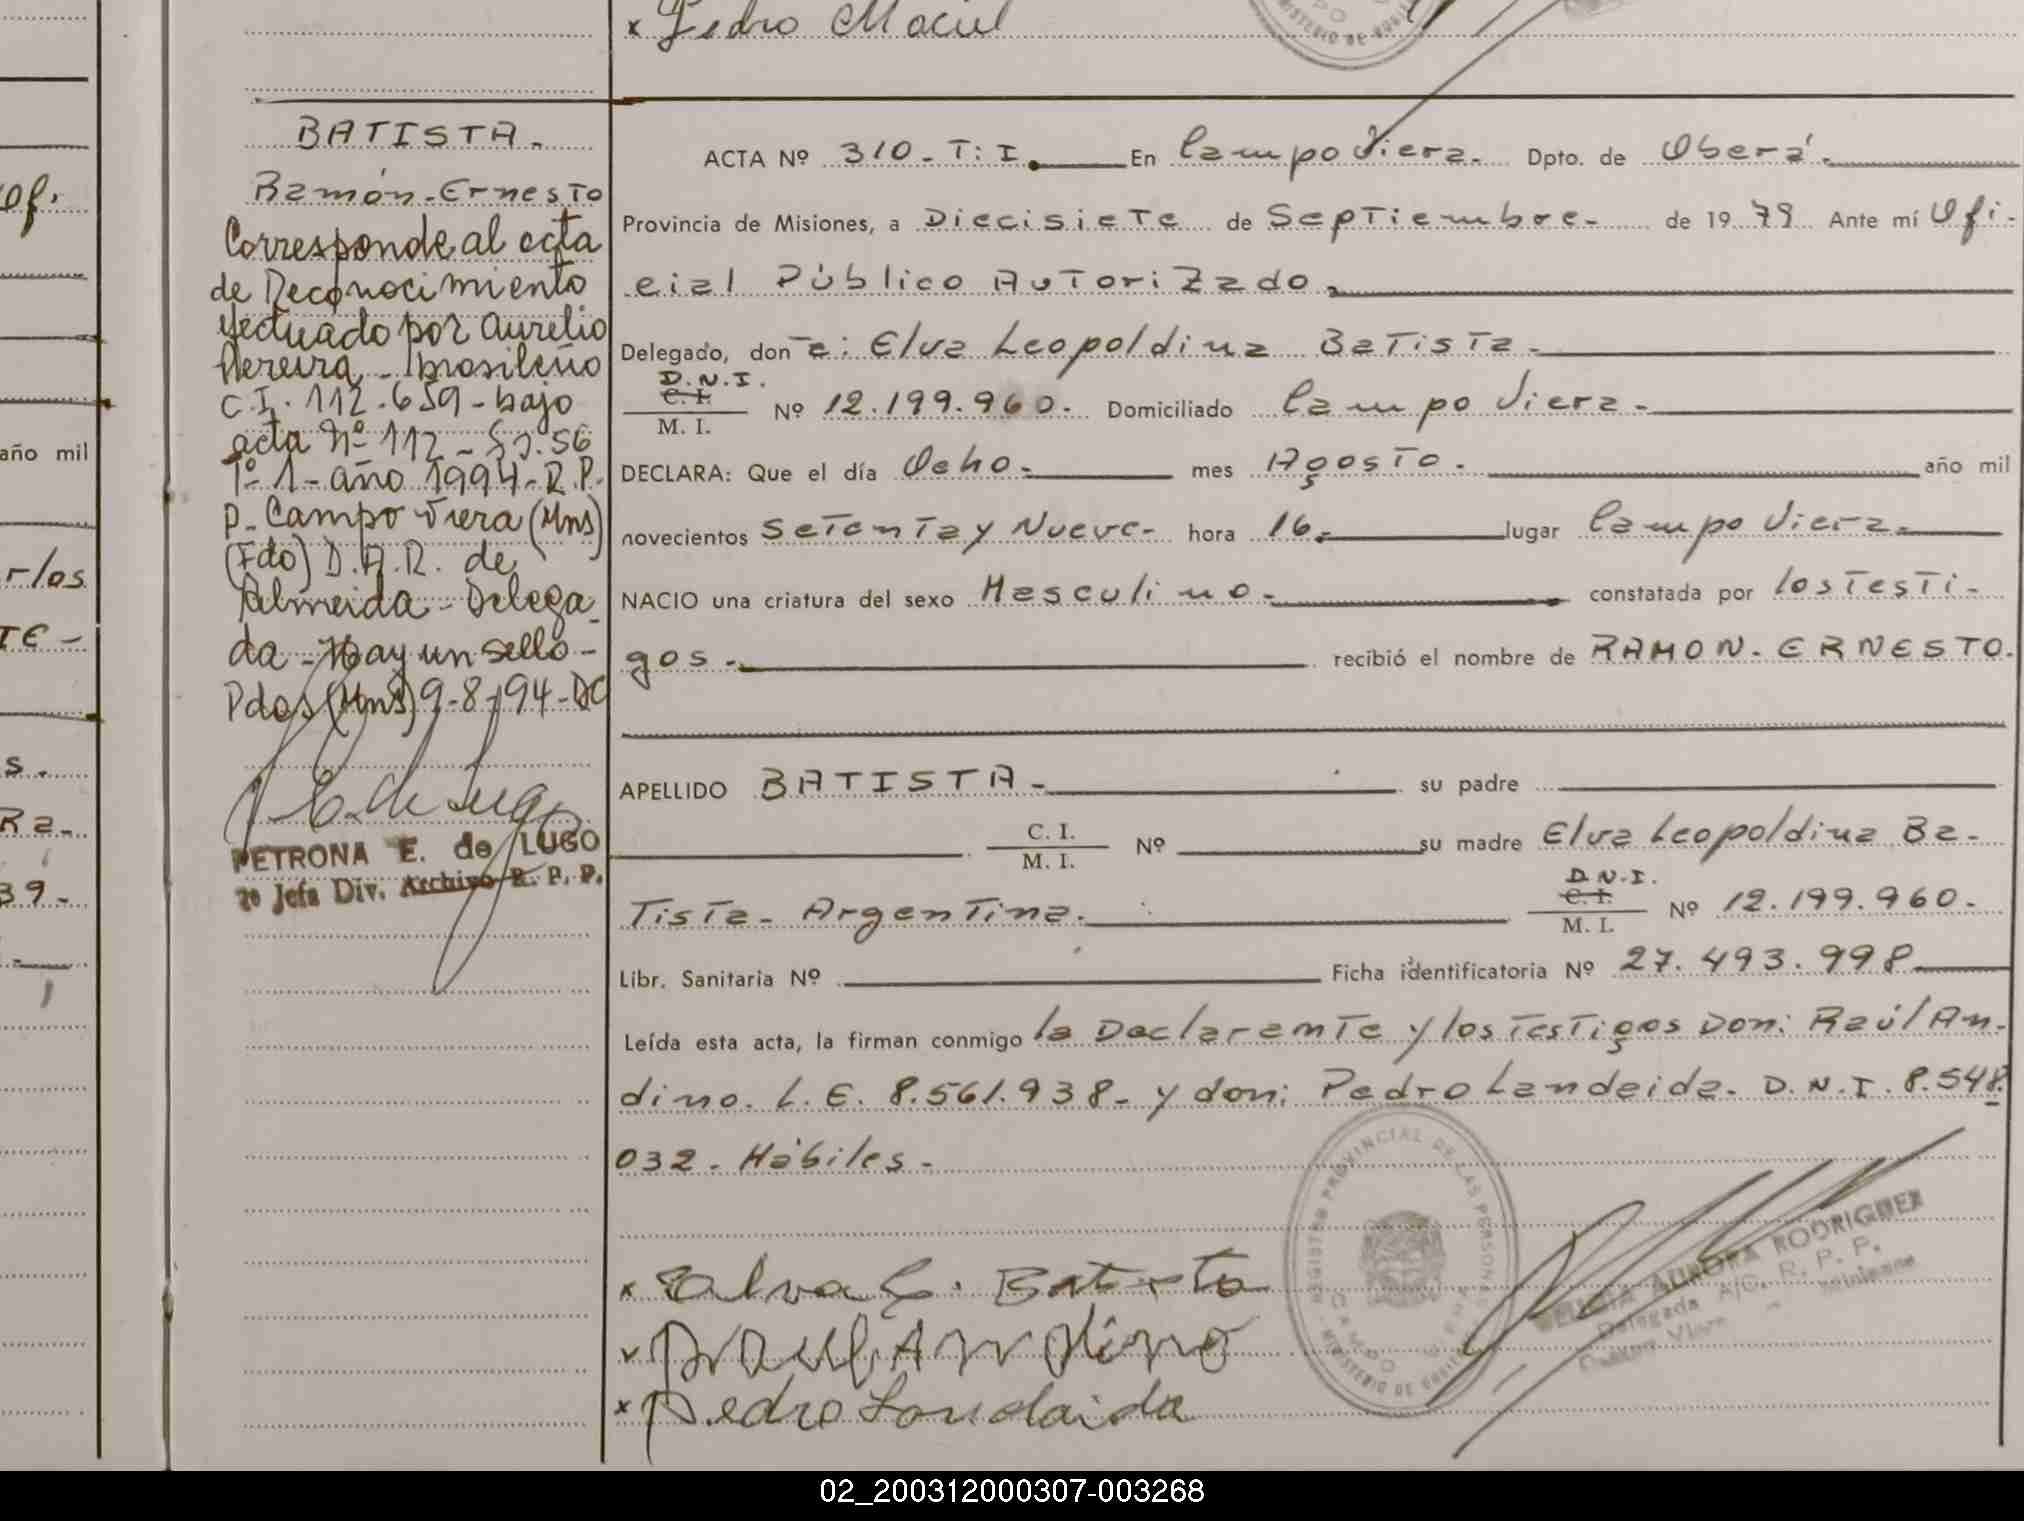 x Pedro Maciel
BATISTA.
Ramón-Ernesto
Corresponde al acta
de Reconocimiento
efectuado por Aurelio
Pereira - brasileño
C.I. 112.659 - bajo
acta Nº 112 - Fº. 56
Tº 1 - año 1994 - R.P.
P. Campo Viera (Mns)
(Fdo) D.A.R. de
Almeida - Delega
da - Hay un sello -
Pdas (Mns) 9-8-94 - DC
PETRONA E. de LUGO
Jefa Div. Archivo R. P. P.
ACTA Nº 310 - T: I. En Campo Viera. Dpto. de Oberá.
Provincia de Misiones, a Diecisiete de Septiembre- de 19 79 Ante mí Ofi-
cial Público Autorizado.
Delegado, don a: Elva Leopoldina Batista.
D.N.I.
C.I.
M. I.
Nº 12.199.960. Domiciliado Campo Viera.
DECLARA: Que el día Ocho. mes Agosto. año mil
novecientos Setenta y Nueve- hora 16. lugar Campo Viera.
NACIO una criatura del sexo Masculino. constatada por los Testi-
gos. recibió el nombre de RAMON. ERNESTO.
APELLIDO BATISTA- su padre
C. I.
M. I.
Nº su madre Elva Leopoldina Ba-
tista- Argentina.
D.N.I.
C. I.
M. I.
Nº 12.199.960.
Libr. Sanitaria Nº Ficha identificatoria Nº 27.493.998
Leída esta acta, la firman conmigo la Declarante y los Testigos Don: Raúl An-
dino. L.E. 8.561.938- y don: Pedro Landaida. D.N.I. 8.548.
032. Hábiles.
x Elva L. Batista
Raul Andino
x Pedro Landaida
REGISTRO PROVINCIAL DE LAS PERSONAS
MINISTERIO DE GOBIERNO
AURORA RODRIGUEZ
Delegada A/C. R. P. P.
Campo Viera - Misiones
ofi.
año mil
rlos
TE-
s.
Ra-
39-
02_200312000307-003268